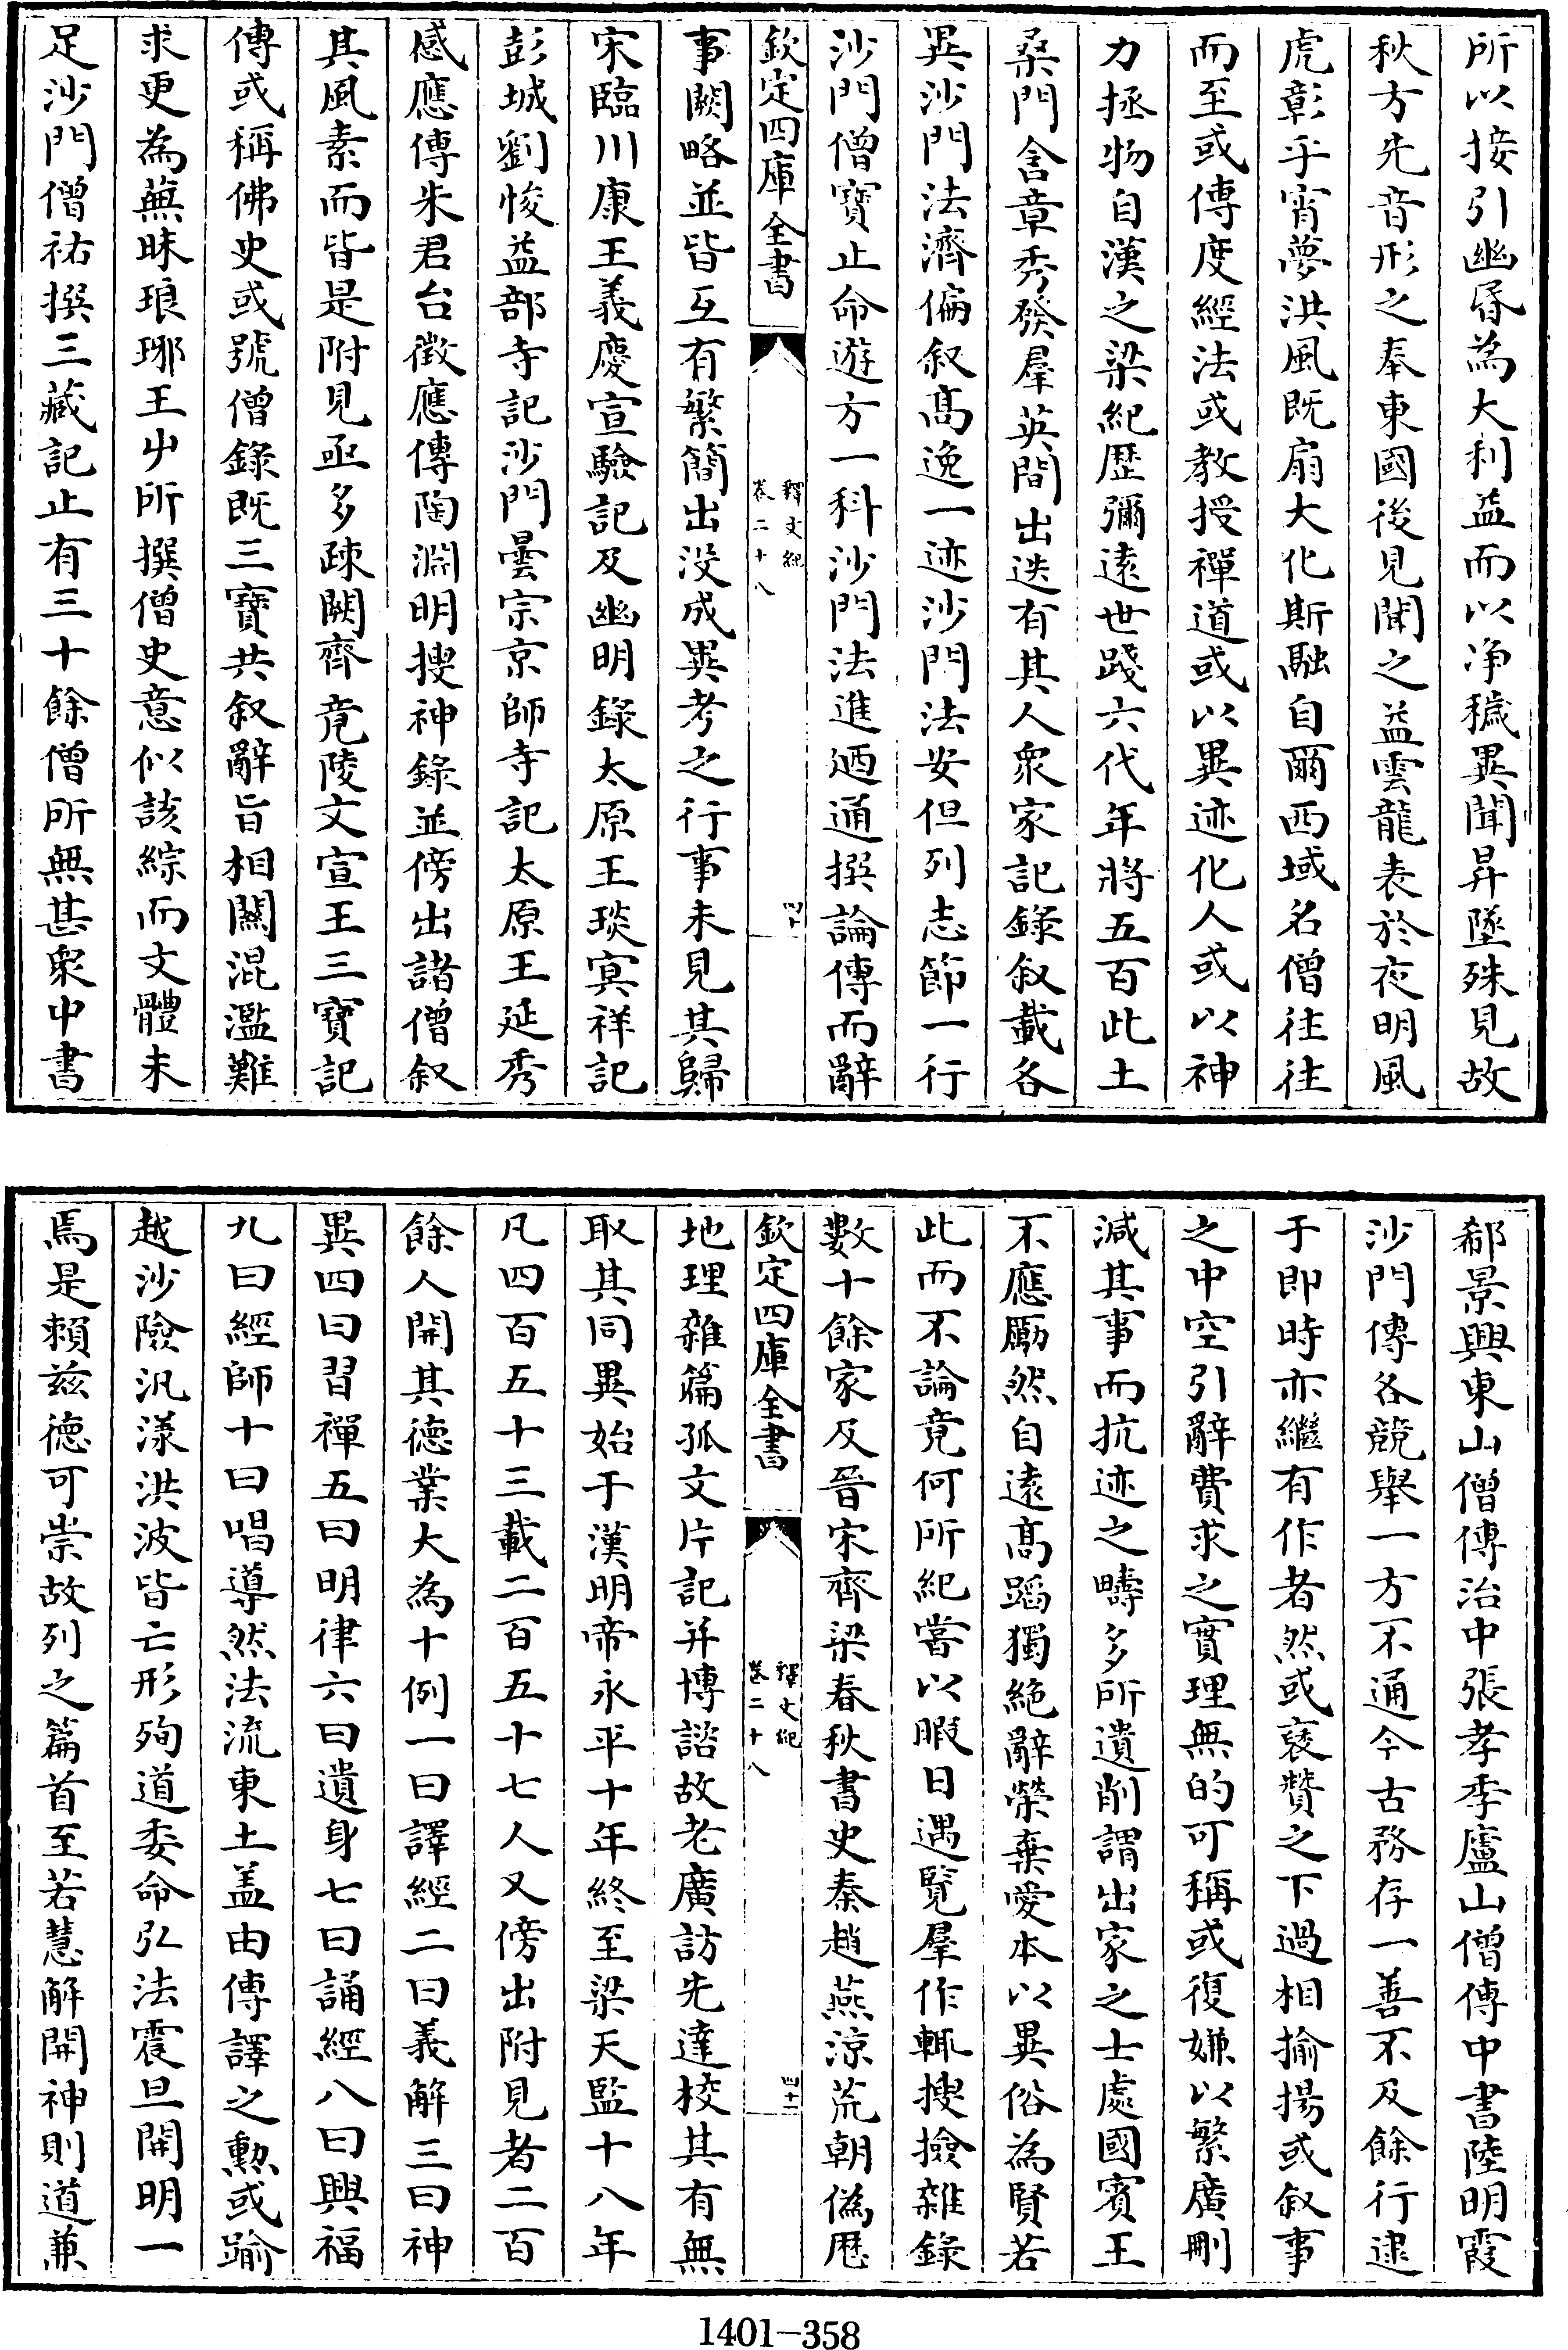 所以接引幽昬為大利益而以净穢異聞昇墜殊見故
秋方先音形之奉東國後見聞之益雲龍表於夜明風
虎彰乎宵夢洪風既扇大化斯融自爾西域名僧往往
而至或傳度經法或教授禪道或以異迹化人或以神
力拯物自漢之梁紀歷彌遠世踐六代年將五百此土
桑門含章秀發羣英間出迭有其人衆家記錄叙載各
異沙門法濟偏叙髙逸一迹沙門法安但列志節一行
沙門僧寶止命遊方一科沙門法進廼通撰論傳而辭
欽定四庫全書
釋文紀
卷二十八
四十
事闕略並皆互有繁簡出没成異考之行事未見其歸
宋臨川康王義慶宣驗記及幽明錄太原王琰㝠祥記
彭城劉悛益部寺記沙門曇宗京師寺記太原王延秀
感應傳朱君台徵應傳陶淵明搜神錄並傍出諸僧叙
其風素而皆是附見亟多疎闕齊竟陵文宣王三寶記
傳或稱佛史或號僧錄既三寶共叙辭旨相關混濫難
求更為蕪昧琅琊王屮所撰僧史意似該綜而文體未
足沙門僧祐撰三藏記止有三十餘僧所無甚衆中書
郗景興東山僧傳治中張孝季廬山僧傳中書陸明霞
沙門傳各競舉一方不通今古務存一善不及餘行逮
于即時亦繼有作者然或褒贊之下過相揄揚或叙事
之中空引辭費求之實理無的可稱或復嫌以繁廣刪
減其事而抗迹之疇多所遺削謂出家之士處國賓王
不應勵然自遠髙蹈獨絶辭榮棄愛本以異俗為賢若
此而不論竟何所紀嘗以暇日遇覽羣作輒搜撿雜錄
數十餘家及晉宋齊梁春秋書史秦趙燕涼荒朝偽歴
欽定四庫全書
釋文紀
卷二十八
四十一
地理雜篇孤文片記并博諮故老廣訪先達校其有無
取其同異始于漢明帝永平十年終至梁天監十八年
凡四百五十三載二百五十七人又傍出附見者二百
餘人開其德業大為十例一曰譯經二曰義解三曰神
異四曰習禪五曰明律六曰遺身七曰誦經八曰興福
九曰經師十曰唱導然法流東土盖由傳譯之勲或踰
越沙險汎漾洪波皆亡形殉道委命弘法震旦開明一
焉是賴兹德可崇故列之篇首至若慧解開神則道兼
1401-358